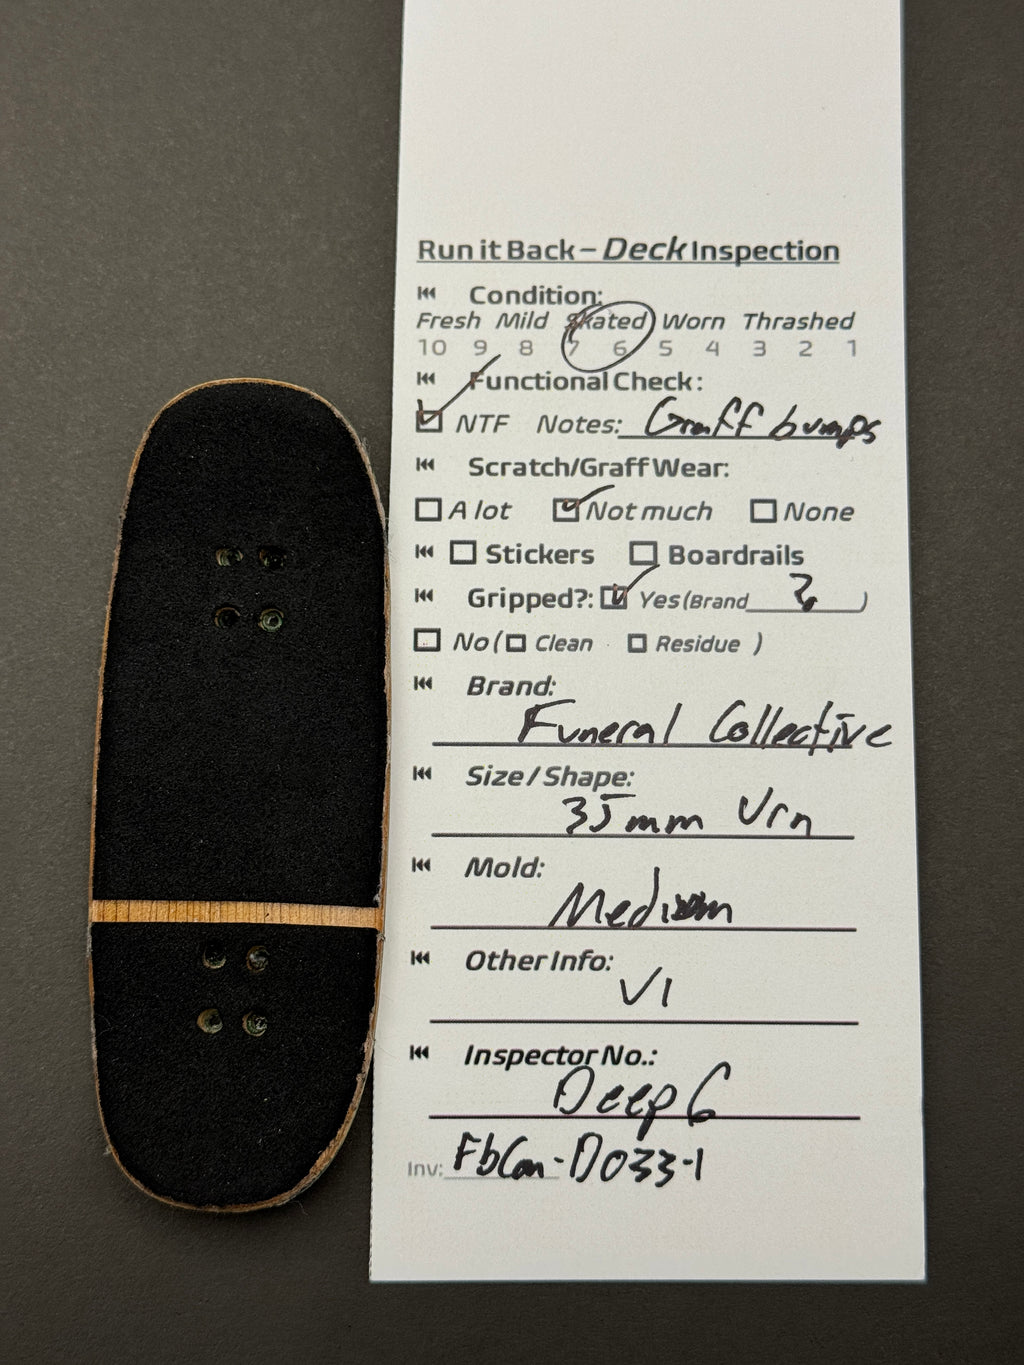 Run it Back – Deck Inspection
Condition:
Fresh Mild Skated Worn Thrashed
10 9 8 7 6 5 4 3 2 1
Functional Check:
NTF Notes: Graff bumps
Scratch/Graff Wear:
A lot Not much None
Stickers Boardrails
Gripped?: Yes (Brand ? )
No ( Clean Residue )
Brand:
Funeral Collective
Size / Shape:
35mm Urn
Mold:
Medium
Other Info:
V1
Inspector No.:
Deep6
Inv: FbCon-D033-1